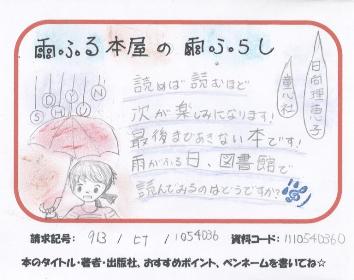 雨ふる本屋の雨ふらし
日向理恵子
童心社
読めば読むほど
次が楽しみになります!
最後まであきない本です!
雨がふる日、図書館で
読んでみるのはどうですか?
SHOUDYN
請求記号: 913 / ヒナ / 1054036 資料コード: 1110540360
本のタイトル・著者・出版社、おすすめポイント、ペンネームを書いてね☆